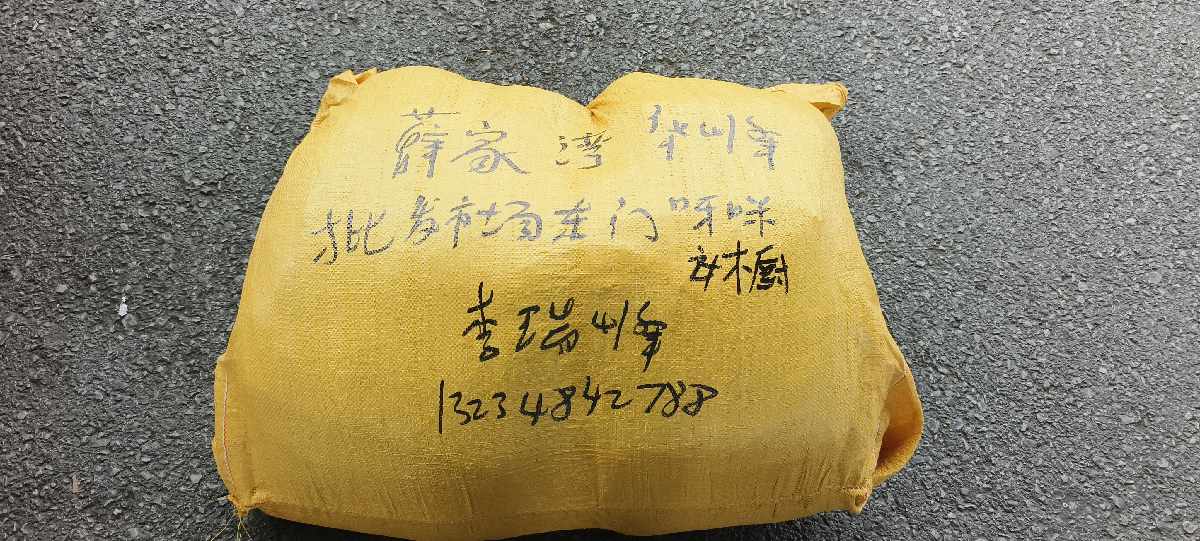 薛家湾 华峰
批发市场东门 呀咪
衣橱
李瑞峰
13234842788